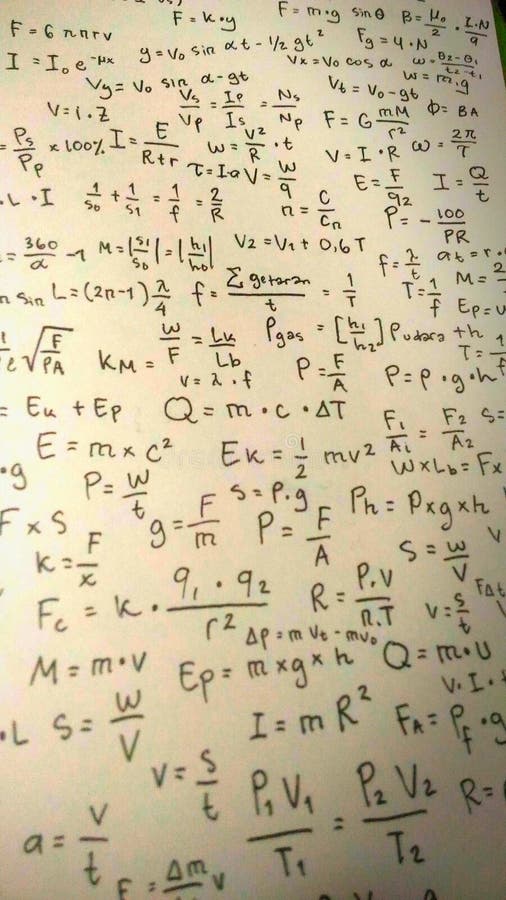 F = k · y
F = m · g sin θ
B = μ₀/2 · I.N/a
F = 6 π η r v
I = I₀ e^-μx
y = v₀ sin αt - 1/2 gt²
Fg = 4 · N
Vx = V₀ cos α
ω = θ₂ - θ₁/t₂ - t₁
Vy = V₀ sin α - gt
Vt = V₀ - gt
w = m . g
V = i . Z
Vs/Vp = Ip/Is = Ns/Np
F = G mM/r²
Φ = BA
= Ps/Pp × 100%
I = E/R+r
w = V²/R · t
V = I · R
ω = 2π/T
τ = I·α
V = W/q
E = F/q2
I = Q/t
. L · I
1/s₀ + 1/s₁ = 1/f = 2/R
n = C/Cn
P = - 100/PR
= 360/α - 1
M = |s₁/s₀| = |h₁/h₀|
V2 = V1 + 0,6T
f = λ/t
at = r ·
n sin
L = (2n-1) λ/4
f = Σ getaran/t = 1/T
T = 1/f
M = 2
Ep = u
√F/PA
KM = W/F = Lk/Lb
Pgas = [h₁/h₂] Pudara + h
T = 1/f
v = λ · f
P = F/A
P = ρ · g · h
= Ek + Ep
Q = m · c · ΔT
F₁/A₁ = F₂/A₂
S =
E = m × c²
Ek = 1/2 mv²
W × Lb = F×
· g
P = W/t
S = ρ . g
F × S
g = F/m
P = F/A
Ph = ρ×g×h
k = F/x
S = w/V
V
Fc = k · q₁ · q₂/r²
R = P.V/n.T
v = s/t
FΔt
Δp = m Vt - mv₀
M = m · v
Ep = m×g×h
Q = m · U
V . I .
· L
S = W/V
I = m R²
FA = Pf · g
V = s/t
P₁ V₁/T₁ = P₂ V₂/T₂
R =
a = v/t
F = Δm/ v